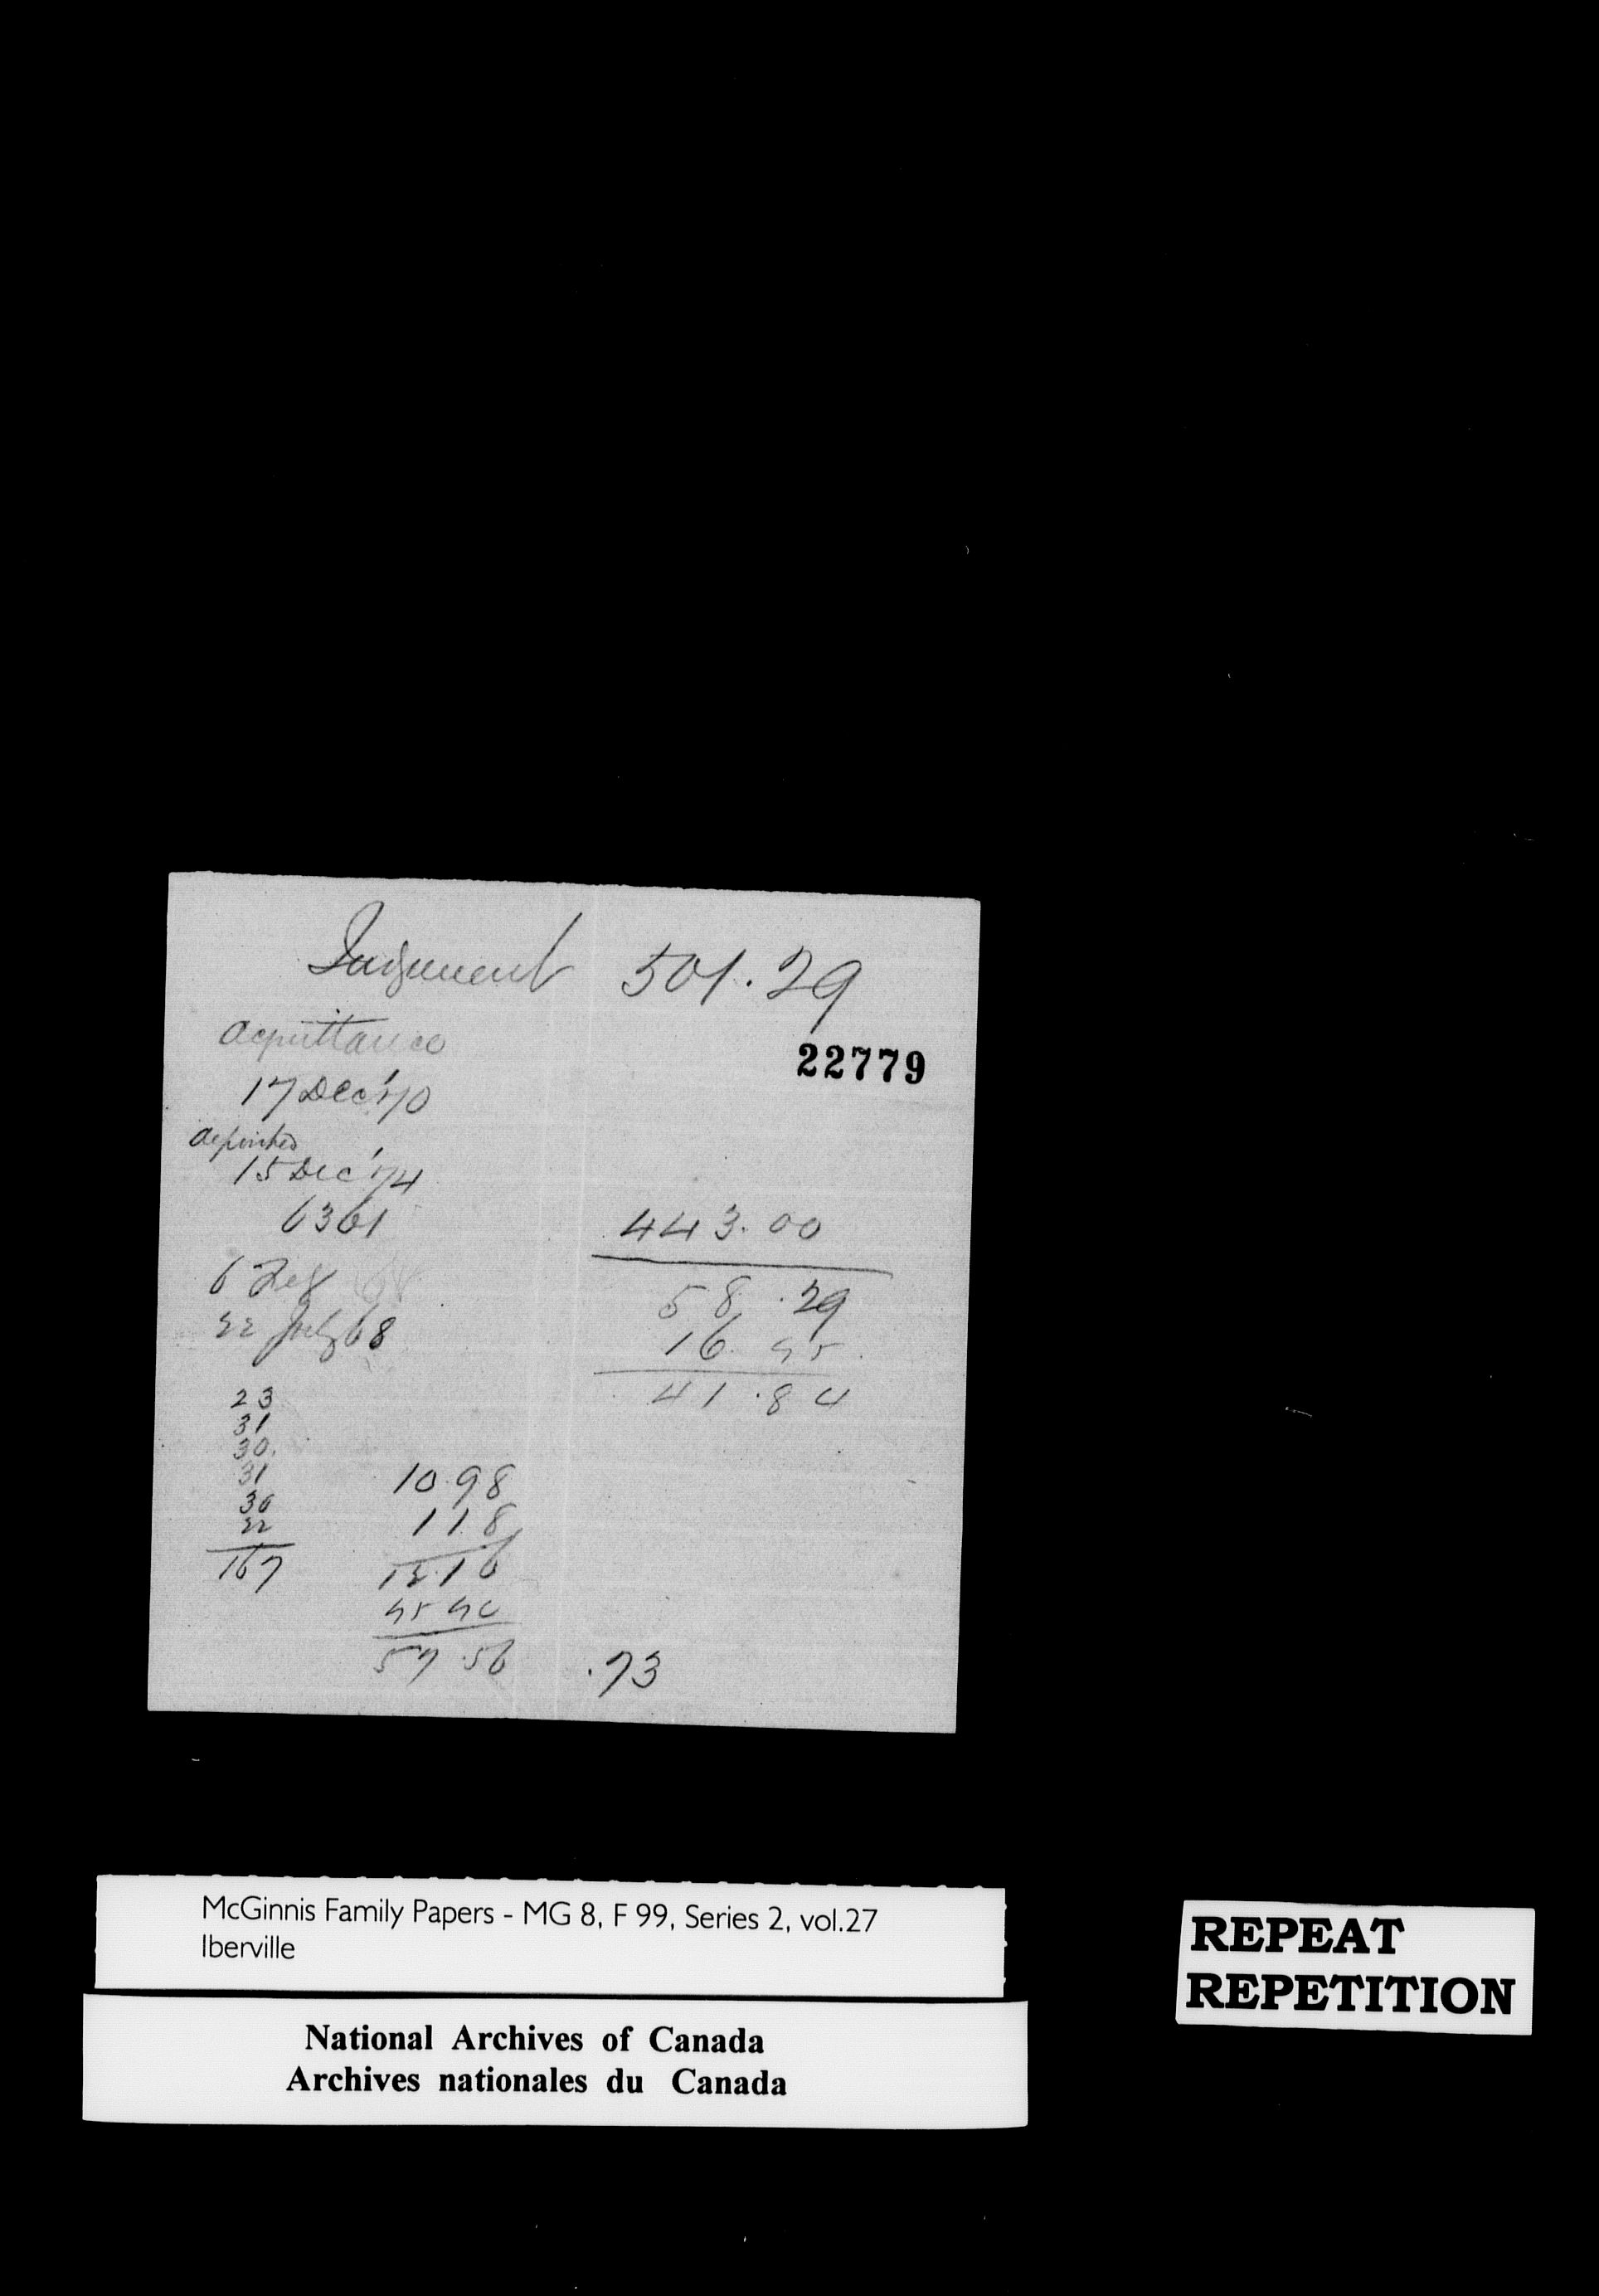 Judgment 501.29
22779
acquittance
17 Dec '70
deposited
15 Dec '74
6361 443.00
6
58.29
22 July 68
16.45
23 41.84
31
30
31 10.98
30 1 18
22
167 12.16
45 40
57.56 .73
McGinnis Family Papers - MG 8, F 99, Series 2, vol.27
Iberville
REPEAT
REPETITION
National Archives of Canada
Archives nationales du Canada